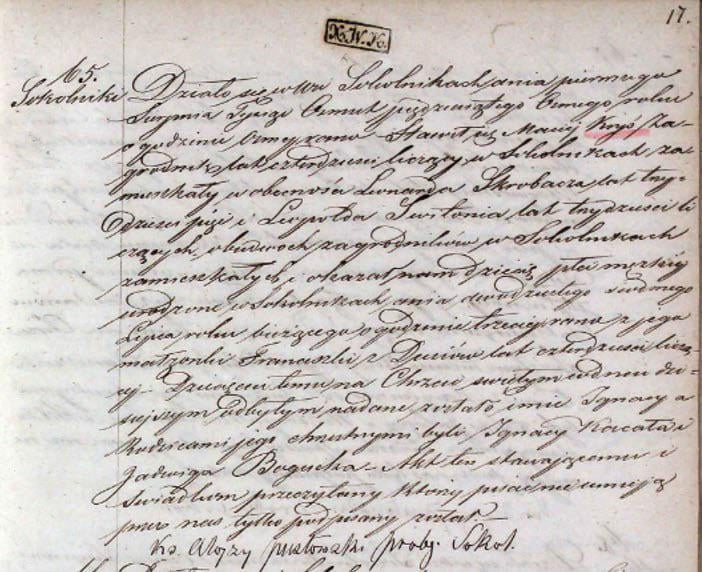 17.
X.W.K.
65.
Sokolniki
Działo się we wsi Sokolnikach dnia pierwszego
Sierpnia Tysiąc Osmset pięćdziesiątego Osmego roku
o godzinie Osmej rano. Stawił się Maciej Kryś Za-
grodnik lat czterdzieści liczący w Sokolnikach za-
mieszkały w obecności Leonarda Skrobacza lat trzy-
dzieści pięć i Leopolda Switonia lat trzydzieści li-
czących, obudwoch zagrodników w Sokolnikach
zamieszkałych, i okazał nam dziecię płci męzkiej
urodzone w Sokolnikach dnia dwudziestego siodmego
Lipca roku bieżącego o godzinie trzeciej rano z jego
małżonki Franciszki z Duciów lat czterdzieści liczą-
cej. Dziecięciu temu na Chrzcie świętym w dniu dzi-
siejszym odbytym nadane zostało imie Ignacy a
Rodzicami jego chrzestnymi byli Ignacy Kaczała i
Jadwiga Bogucka. Akt ten stawającemu i
Swiadkom przeczytany którzy pisać nie umieją
przez nas tylko podpisany został. -
Ks. Alojzy prob. Sokol.